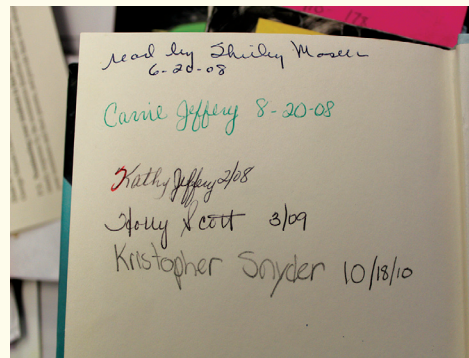 read by Shirley Moser
6-20-08
Carrie Jeffery 8-20-08
Kathy Jeffery 2/08
Holly Scott 3/09
Kristopher Snyder 10/18/10